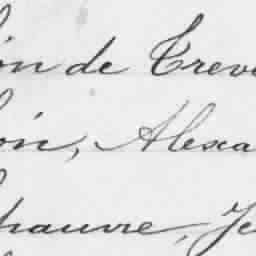 ón de Trev
ón, Alexa
hauvre, Je